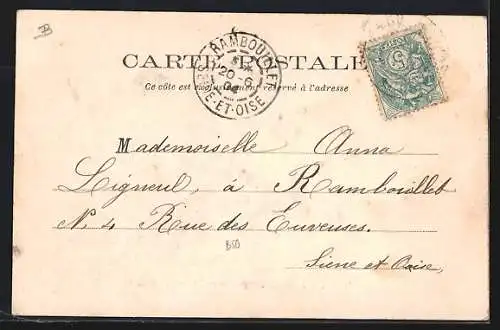 CARTE POSTALE
Ce côté est exclusivement réservé à l'adresse
RAMBOUILLET
20-6
04
SEINE-ET-OISE
5
Mademoiselle Anna
Ligneul, à Ramboiullet
N. 4 Rue des Euveuses.
Siene et Ooise,